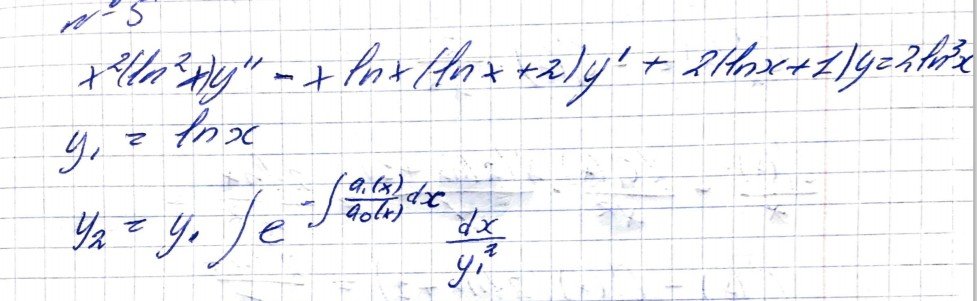 № 5
x²(ln²x)y'' - x lnx(lnx+2)y' + 2(lnx+1)y=2ln³x
y₁ = lnx
y₂ = y₁ ∫e^(-∫ a₁(x)/a₀(x) dx) dx/y₁²